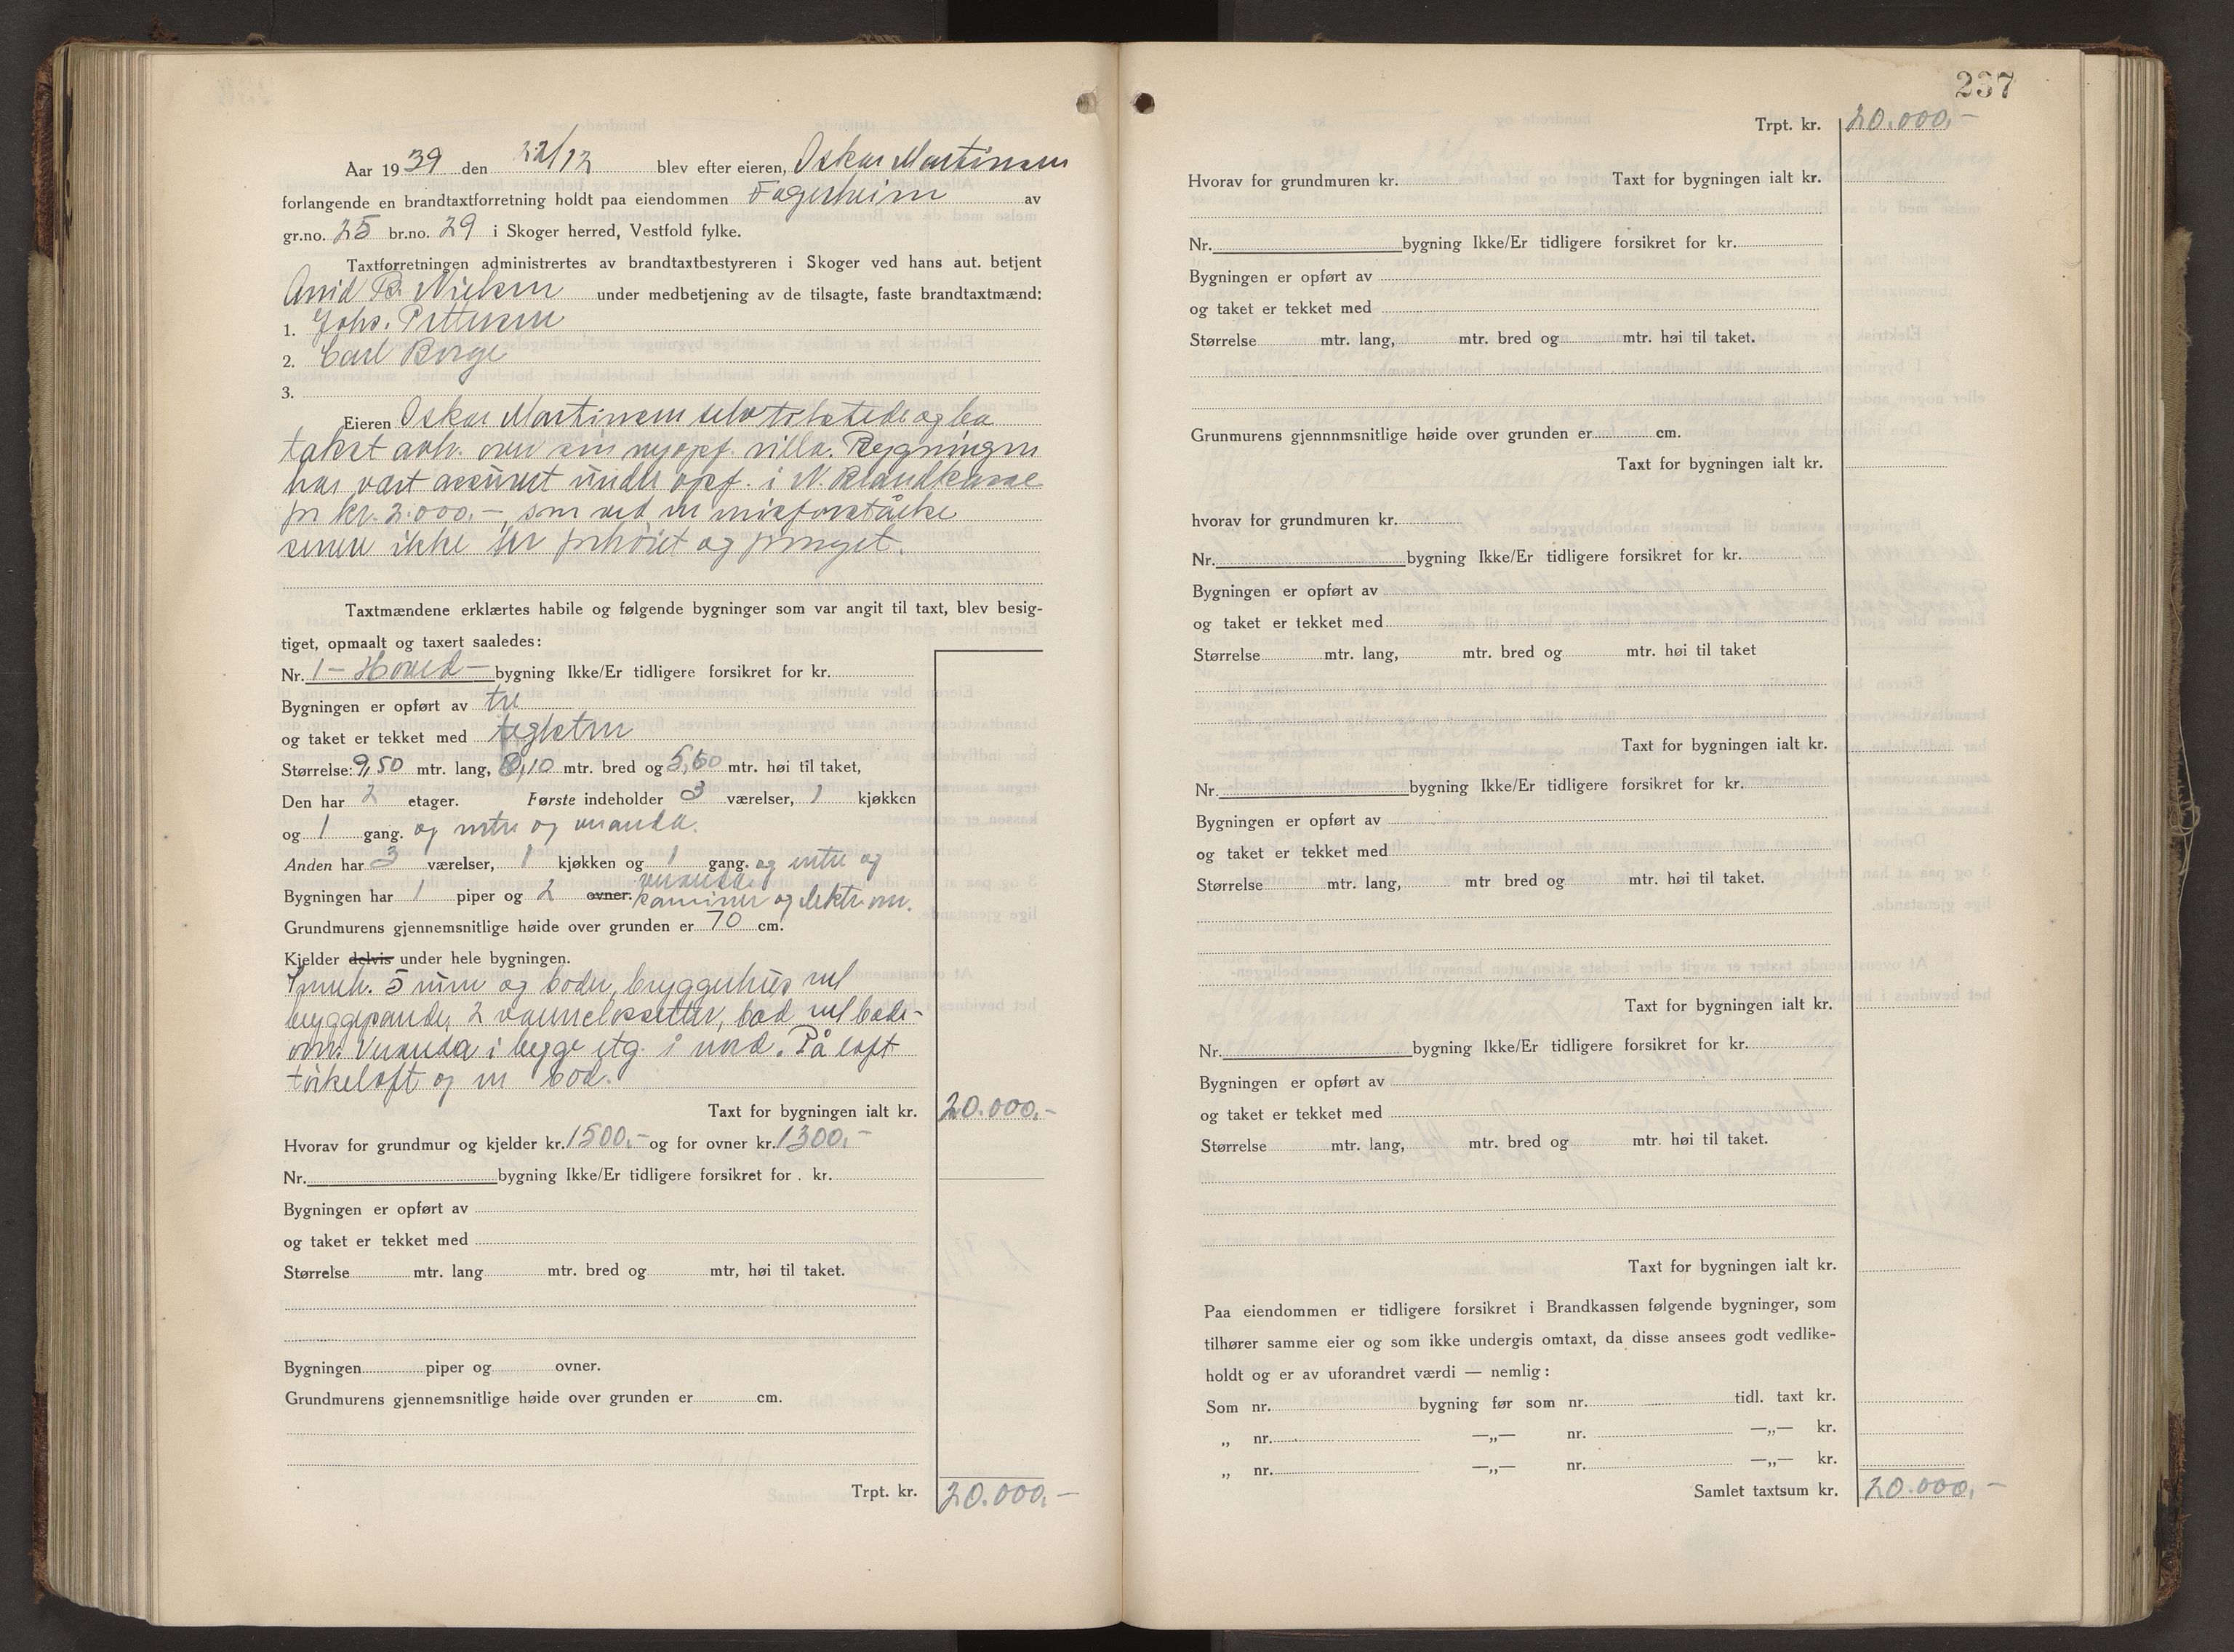 Aar 1939 den 22/12 blev efter eieren, Oskar Martinsen
forlangende en brandtaxtforretning holdt paa eiendommen Fagerheim av
gr.no. 25 br.no. 29 i Skoger herred, Vestfold fylke.
Taxtforretningen administrertes av brandtaxtbestyreren i Skoger ved hans aut. betjent
Arvid B. Nielsen under medbetjening av de tilsagte, faste brandtaxtmænd:
1. Johs. Pettersen
2. Carl Borge
3.
Eieren Oskar Martinsen selv tilstede og ba
takst avh. over sin nyopf. villa. Bygningen
har vært assurert under opf. i N. Brandkasse
for kr. 2.000.- som ved en misforståelse
senere ikke ble forhöiet og fornyet.
Taxtmændene erklærtes habile og følgende bygninger som var angit til taxt, blev besig-
tiget, opmaalt og taxert saaledes:
Nr. 1 - Hoved - bygning Ikke/Er tidligere forsikret for kr.
Bygningen er opført av tre
og taket er tekket med teglsten
Størrelse: 9,50 mtr. lang, 8,10 mtr. bred og 5,60 mtr. høi til taket,
Den har 2 etager. Første indeholder 3 værelser, 1 kjøkken
og 1 gang. og entre og veranda.
Anden har 3 værelser, 1 kjøkken og 1 gang. og entre og
veranda.
Bygningen har 1 piper og 2 ovner. kaminer og elektr. ovn.
Grundmurens gjennemsnitlige høide over grunden er 70 cm.
Kjelder delvis under hele bygningen.
5 rum og boder, bryggerhus vel
bryggepande, 2 vannclosetter, bad vel bade-
ovn. Veranda i begge etg. i nord. På loft
törkeloft og en bod.
Taxt for bygningen ialt kr. 20.000.-
Hvorav for grundmur og kjelder kr. 1500.- og for ovner kr. 1300.-
Nr. bygning Ikke/Er tidligere forsikret for . kr.
Bygningen er opført av
og taket er tekket med
Størrelse mtr. lang mtr. bred og mtr, høi til taket.
Bygningen piper og ovner.
Grundmurens gjennemsnitlige høide over grunden er cm.
Trpt. kr. 20.000.-
237
Trpt. kr. 20.000.-
Hvorav for grundmuren kr. Taxt for bygningen ialt kr.
Nr. bygning Ikke/Er tidligere forsikret for kr.
Bygningen er opført av
og taket er tekket med
Størrelse mtr. lang, mtr. bred og mtr. høi til taket.
Grunmurens gjennnmsnitlige høide over grunden er cm.
Taxt for bygningen ialt kr.
hvorav for grundmuren kr.
Nr. bygning Ikke/Er tidligere forsikret for kr.
Bygningen er opført av
og taket er tekket med
Størrelse mtr. lang, mtr. bred og mtr. høi til taket
Taxt for bygningen ialt kr.
Nr. bygning Ikke/Er tidligere forsikret for kr.
Bygningen er opført av
og taket er tekket med
Størrelse mtr. lang, mtr bred og mtr. høi til taket.
Taxt for bygningen ialt kr.
Nr. bygning Ikke/Er tidligere forsikret for kr.
Bygningen er opført av
og taket er tekket med
Størrelse mtr. lang, mtr. bred og mtr. høi til taket.
Taxt for bygningen ialt kr.
Paa eiendommen er tidligere forsikret i Brandkassen følgende bygninger, som
tilhører samme eier og som ikke undergis omtaxt, da disse ansees godt vedlike-
holdt og er av uforandret værdi — nemlig:
Som nr. bygning før som nr. tidl. taxt kr.
„ nr. —„— nr. —„— kr.
„ nr. —„— nr. —„— kr.
Samlet taxtsum kr. 20.000.-